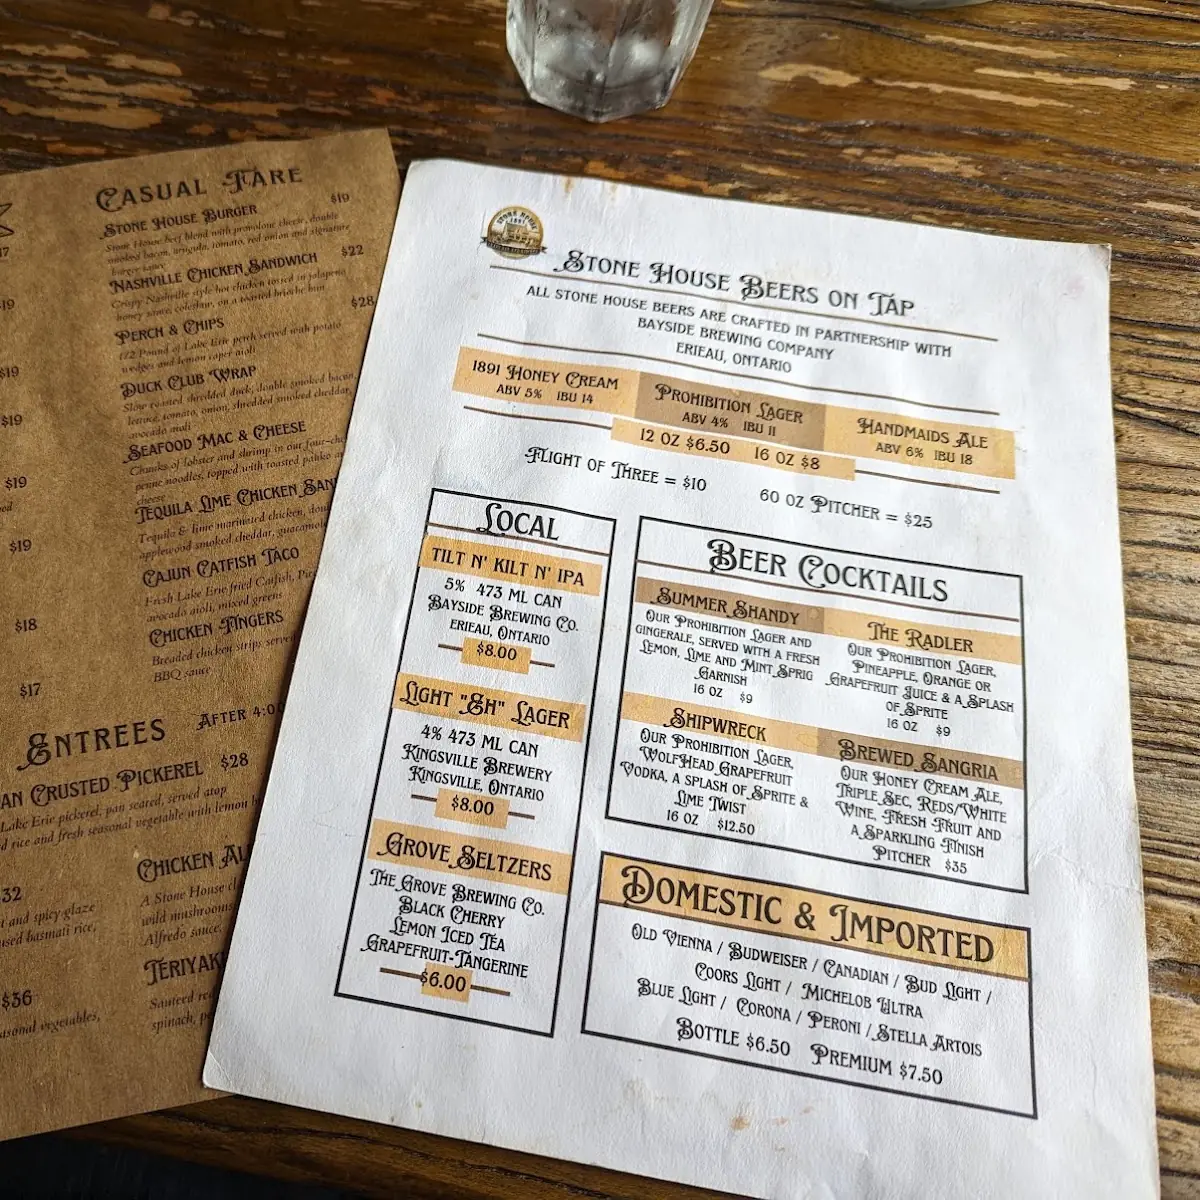 CASUAL FARE
STONE HOUSE BURGER $19
Stone House beef blend with provolone cheese, double
smoked bacon, arugula, tomato, red onion and signature
burger sauce
NASHVILLE CHICKEN SANDWICH $22
Crispy Nashville style hot chicken tossed in jalapeno
honey sauce, coleslaw, on a toasted brioche bun
PERCH & CHIPS $28
1/2 Pound of Lake Erie perch served with potato
wedges and lemon caper aioli
DUCK CLUB WRAP
Slow roasted shredded duck, double smoked bacon,
lettuce, tomato, onion, shredded smoked cheddar,
avocado aioli
SEAFOOD MAC & CHEESE
Chunks of lobster and shrimp in our four-
penne noodles, topped with toasted panko
cheese
TEQUILA LIME CHICKEN
Tequila & lime marinated chicken,
applewood smoked cheddar,
CAJUN CATFISH TACO
Fresh Lake Erie fried Catfish,
avocado aioli, mixed greens
CHICKEN FINGERS
Breaded chicken strips served
BBQ sauce
17
$19
$19
$19
$19
$19
$18
$17
ENTREES AFTER 4:0
AN CRUSTED PICKEREL $28
Lake Erie pickerel, pan seared, served atop
rice and fresh seasonal vegetable with lemon
CHICKEN AL
A Stone House
wild mushrooms
Alfredo sauce,
32
t and spicy glaze
used basmati rice,
TERIYAK
Sauteed
spinach,
$36
asonal vegetables,
STONE HOUSE
1891
STONE HOUSE BEERS ON TAP
ALL STONE HOUSE BEERS ARE CRAFTED IN PARTNERSHIP WITH
BAYSIDE BREWING COMPANY
ERIEAU, ONTARIO
1891 HONEY CREAM
ABV 5% IBU 14
PROHIBITION LAGER
ABV 4% IBU 11
HANDMAIDS ALE
ABV 6% IBU 18
12 OZ $6.50 16 OZ $8
FLIGHT OF THREE = $10 60 OZ PITCHER = $25
LOCAL
TILT N' KILT N' IPA
5% 473 ML CAN
BAYSIDE BREWING CO.
ERIEAU, ONTARIO
$8.00
LIGHT "EH" LAGER
4% 473 ML CAN
KINGSVILLE BREWERY
KINGSVILLE, ONTARIO
$8.00
GROVE SELTZERS
THE GROVE BREWING CO.
BLACK CHERRY
LEMON ICED TEA
GRAPEFRUIT-TANGERINE
$6.00
BEER COCKTAILS
SUMMER SHANDY
OUR PROHIBITION LAGER AND
GINGERALE, SERVED WITH A FRESH
LEMON, LIME AND MINT SPRIG
GARNISH
16 OZ $9
THE RADLER
OUR PROHIBITION LAGER,
PINEAPPLE, ORANGE OR
GRAPEFRUIT JUICE & A SPLASH
OF SPRITE
16 OZ $9
SHIPWRECK
OUR PROHIBITION LAGER,
WOLFHEAD GRAPEFRUIT
VODKA, A SPLASH OF SPRITE &
LIME TWIST
16 OZ $12.50
BREWED SANGRIA
OUR HONEY CREAM ALE,
TRIPLE SEC, REDS/WHITE
WINE, FRESH FRUIT AND
A SPARKLING FINISH
PITCHER $35
DOMESTIC & IMPORTED
OLD VIENNA / BUDWEISER / CANADIAN / BUD LIGHT /
COORS LIGHT / MICHELOB ULTRA
BLUE LIGHT / CORONA / PERONI / STELLA ARTOIS
BOTTLE $6.50 PREMIUM $7.50